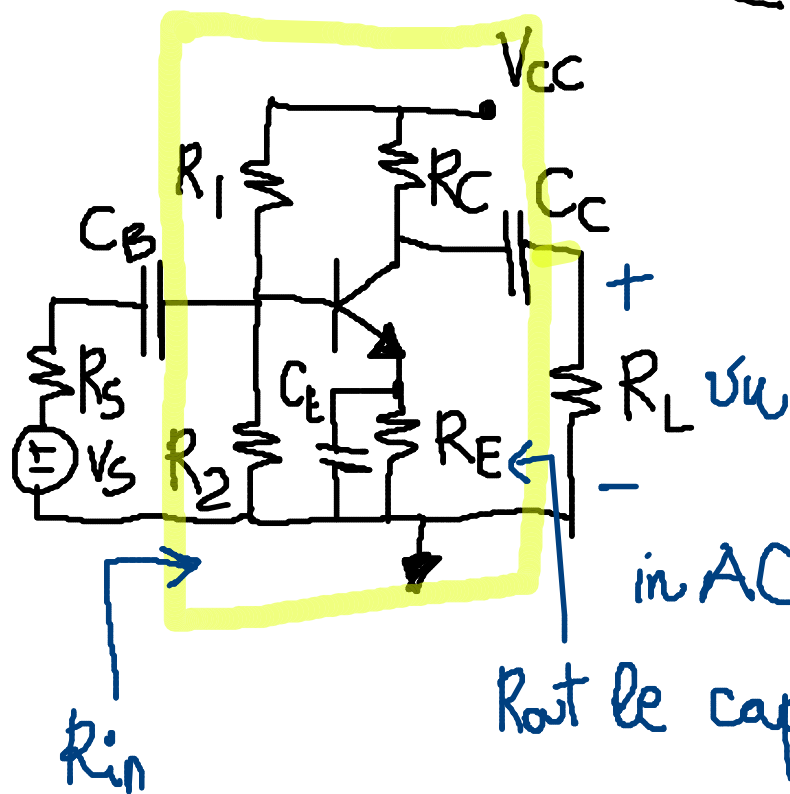 VCC
R1
RC
CC
CB
+
RS
CE
RL
vu
VS
R2
RE
−
in AC
Rout le cap
Rin